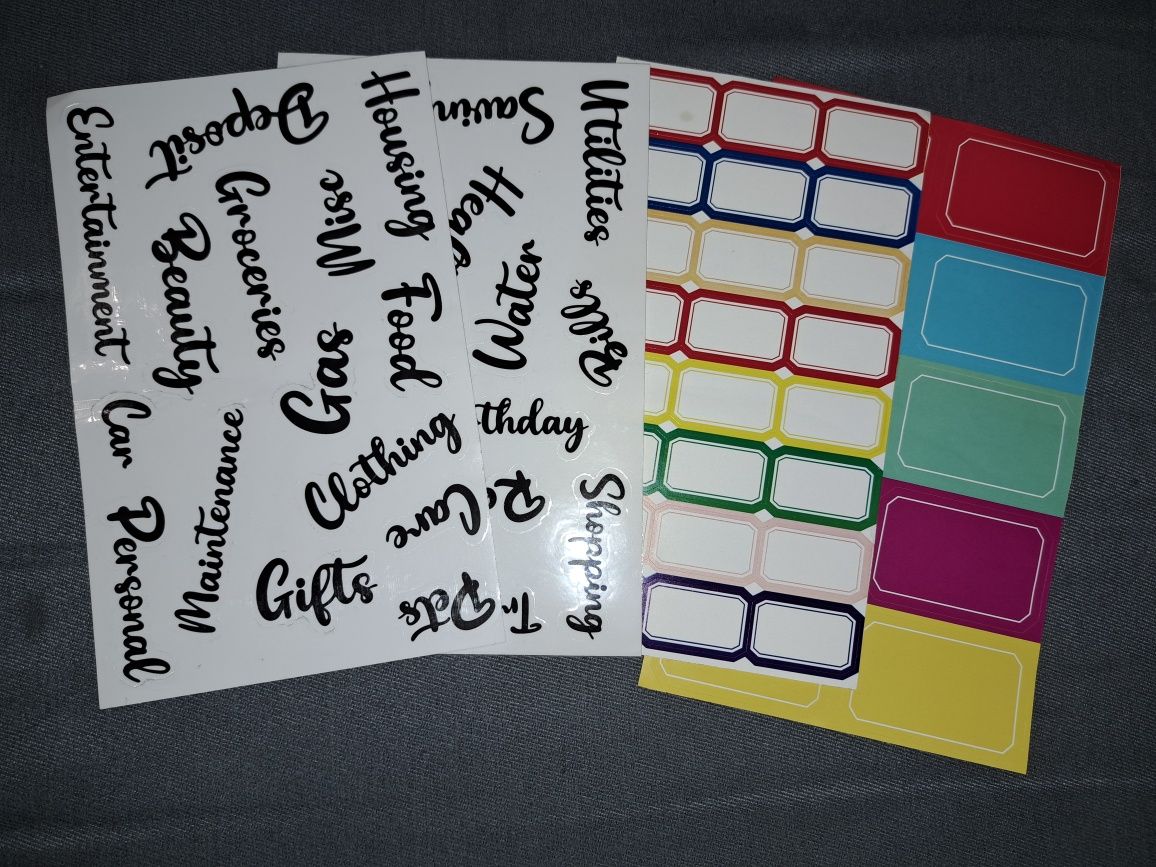 Entertainment
Deposit
Housing
Groceries
Misc
Beauty
Food
Gas
Car
Maintenance
Clothing
Care
Personal
Gifts
Pets
Savin
Utilities
Hea
Water
Bills
thday
Shopping